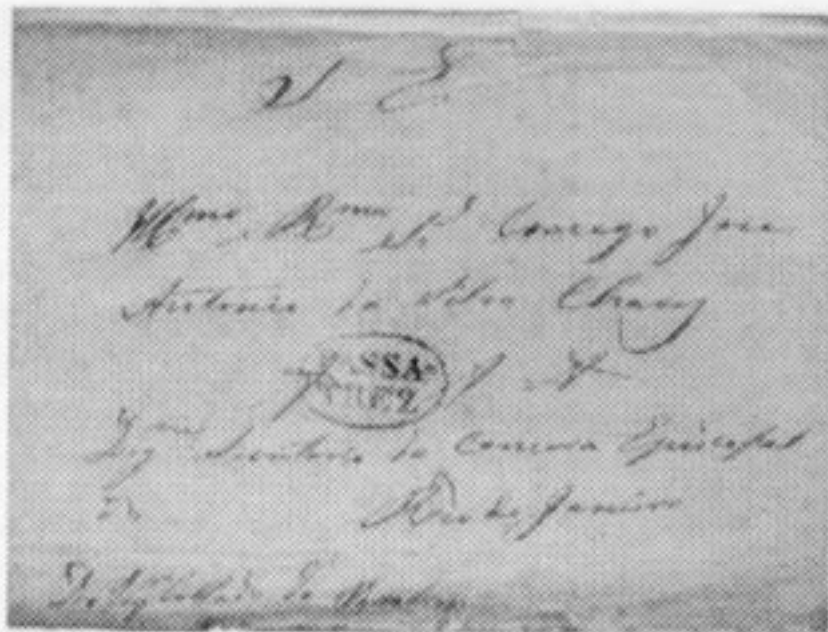 S E
Illmo Rmo Sr Conego Jose
Antonio da Silva Chaves
PASSA-
TREZ
Dig.mo Secretario da Camara Episcopal
Rio de Janeiro